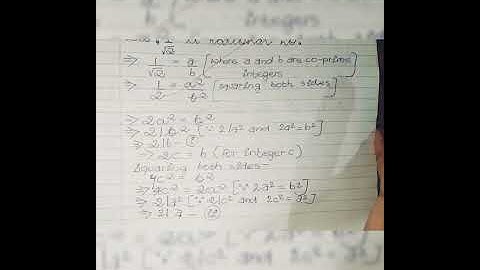 1/√2 is rational no.
⇒ 1/√2 = a/b [where a and b are co-prime integers]
⇒ 1/2 = a²/b² [squaring both sides]
⇒ 2a² = b²
⇒ 2|b² [∵ 2|a² and 2a² = b²]
⇒ 2|b –
⇒ 2c = b (for integer c)
Squaring both sides =
4c² = b²
⇒ 4c² = 2a² [∵ 2a² = b²]
⇒ 2|a² [∵ 2|c² and 2c² = a²]
⇒ 2|a –